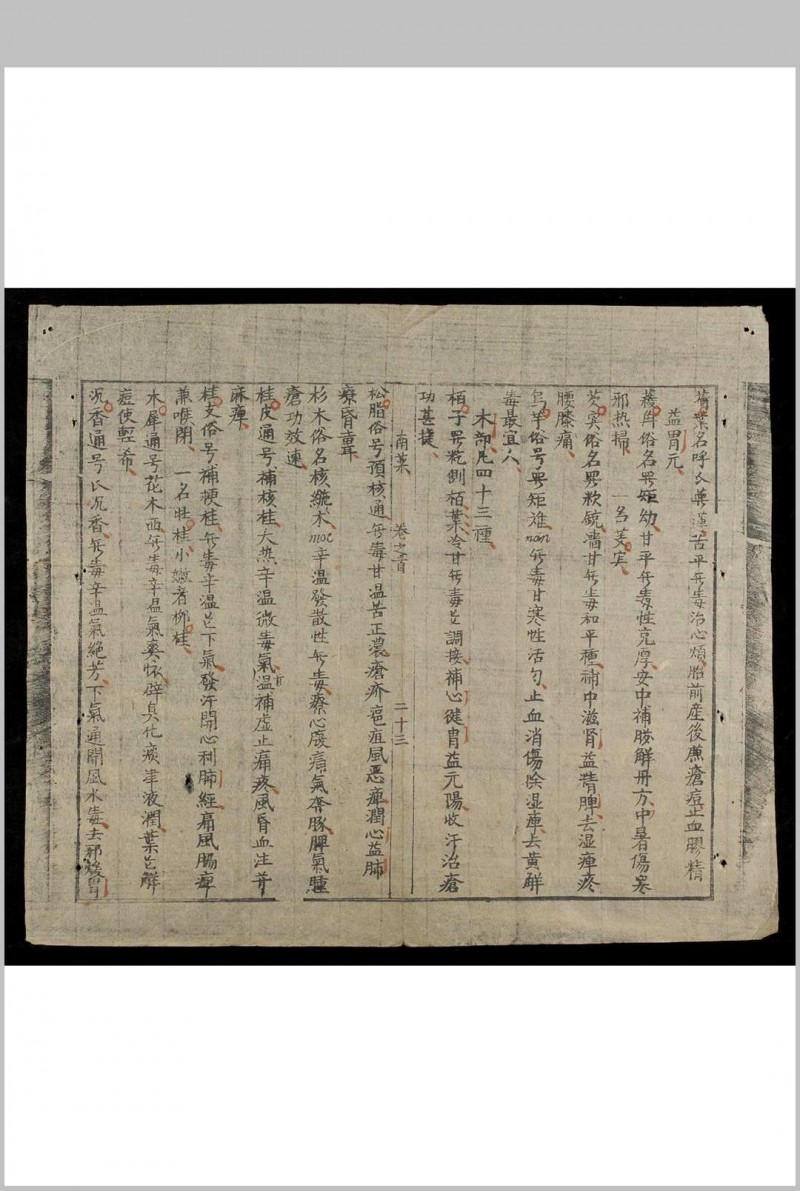 葉名呼箬蓮苦平無毒治心煩胎前産後厭瘡痘止血膠精
益胃元
菱角俗名果矩幼甘平無毒性克厚安中補臓解丹方中暑傷寒
邪热掃 一名芰实
芡实俗名果軟鐃濇甘無毒和平種補中滋腎益精脾去湿痺疼
腰膝痛
烏芋俗号果矩难nan無毒甘寒性活匀止血消傷除湿痺去黄解
毒最宜人
木部凡四十三種
栢子果粓側栢葉冷甘無毒芒調接補心健胃益元陽收汗治瘡
功甚捷
南藥 卷之首 二十三
松脂俗号預核通無毒甘温苦正濃瘡疥疤疽風恶痺潤心益肺
療昏聾
杉木俗名核䌫木moc辛温發散性無毒療心腹痛氣奔豚脾氣腫
瘡功效速
桂皮通号補核桂大热辛温微毒氣温補虚止痛疼風昏血注并
麻痺
桂支俗号補梗桂無毒辛温芒下氣發汗開心利肺經痛風腸痺
兼喉閉 一名牡桂小嫩者柳桂
木犀通号花木西無毒辛温氣爽怀辟臭化痰津液潤葉芒解
痘使輕希
沉香通号氏沉香無毒辛温氣絶芳下氣通開風水毒去邪煖胃